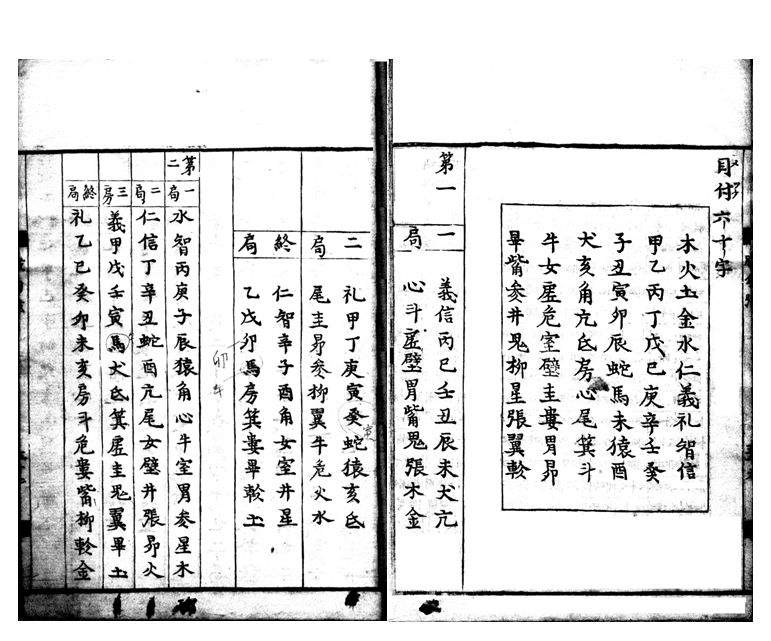 目付六十字
木火土金水仁義礼智信
甲乙丙丁戊己庚辛壬癸
子丑寅卯辰蛇馬未猿酉
犬亥角亢氐房心尾箕斗
牛女虚危室壁圭婁胃昴
畢觜参井鬼柳星張翼軫
第一
一局
義信丙己壬丑辰未犬亢
心斗虚壁胃觜鬼張木金
二局
礼甲丁庚寅癸蛇猿亥氐
尾圭昴参柳翼牛危火水
終局
仁智辛子酉角女室井星
乙戊卯馬房箕婁畢軫土
卯
第二
一局
水智丙庚子辰猿角心牛室胃参星木
二局
仁信丁辛丑蛇酉亢尾女壁井張昴火
三房
義甲戊壬寅馬犬氐箕虚圭鬼翼畢土
終局
礼乙己癸卯未亥房斗危婁觜柳軫金